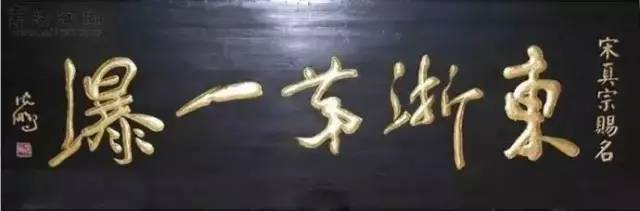 宋真宗賜名
東浙第一瀑
沈鵬